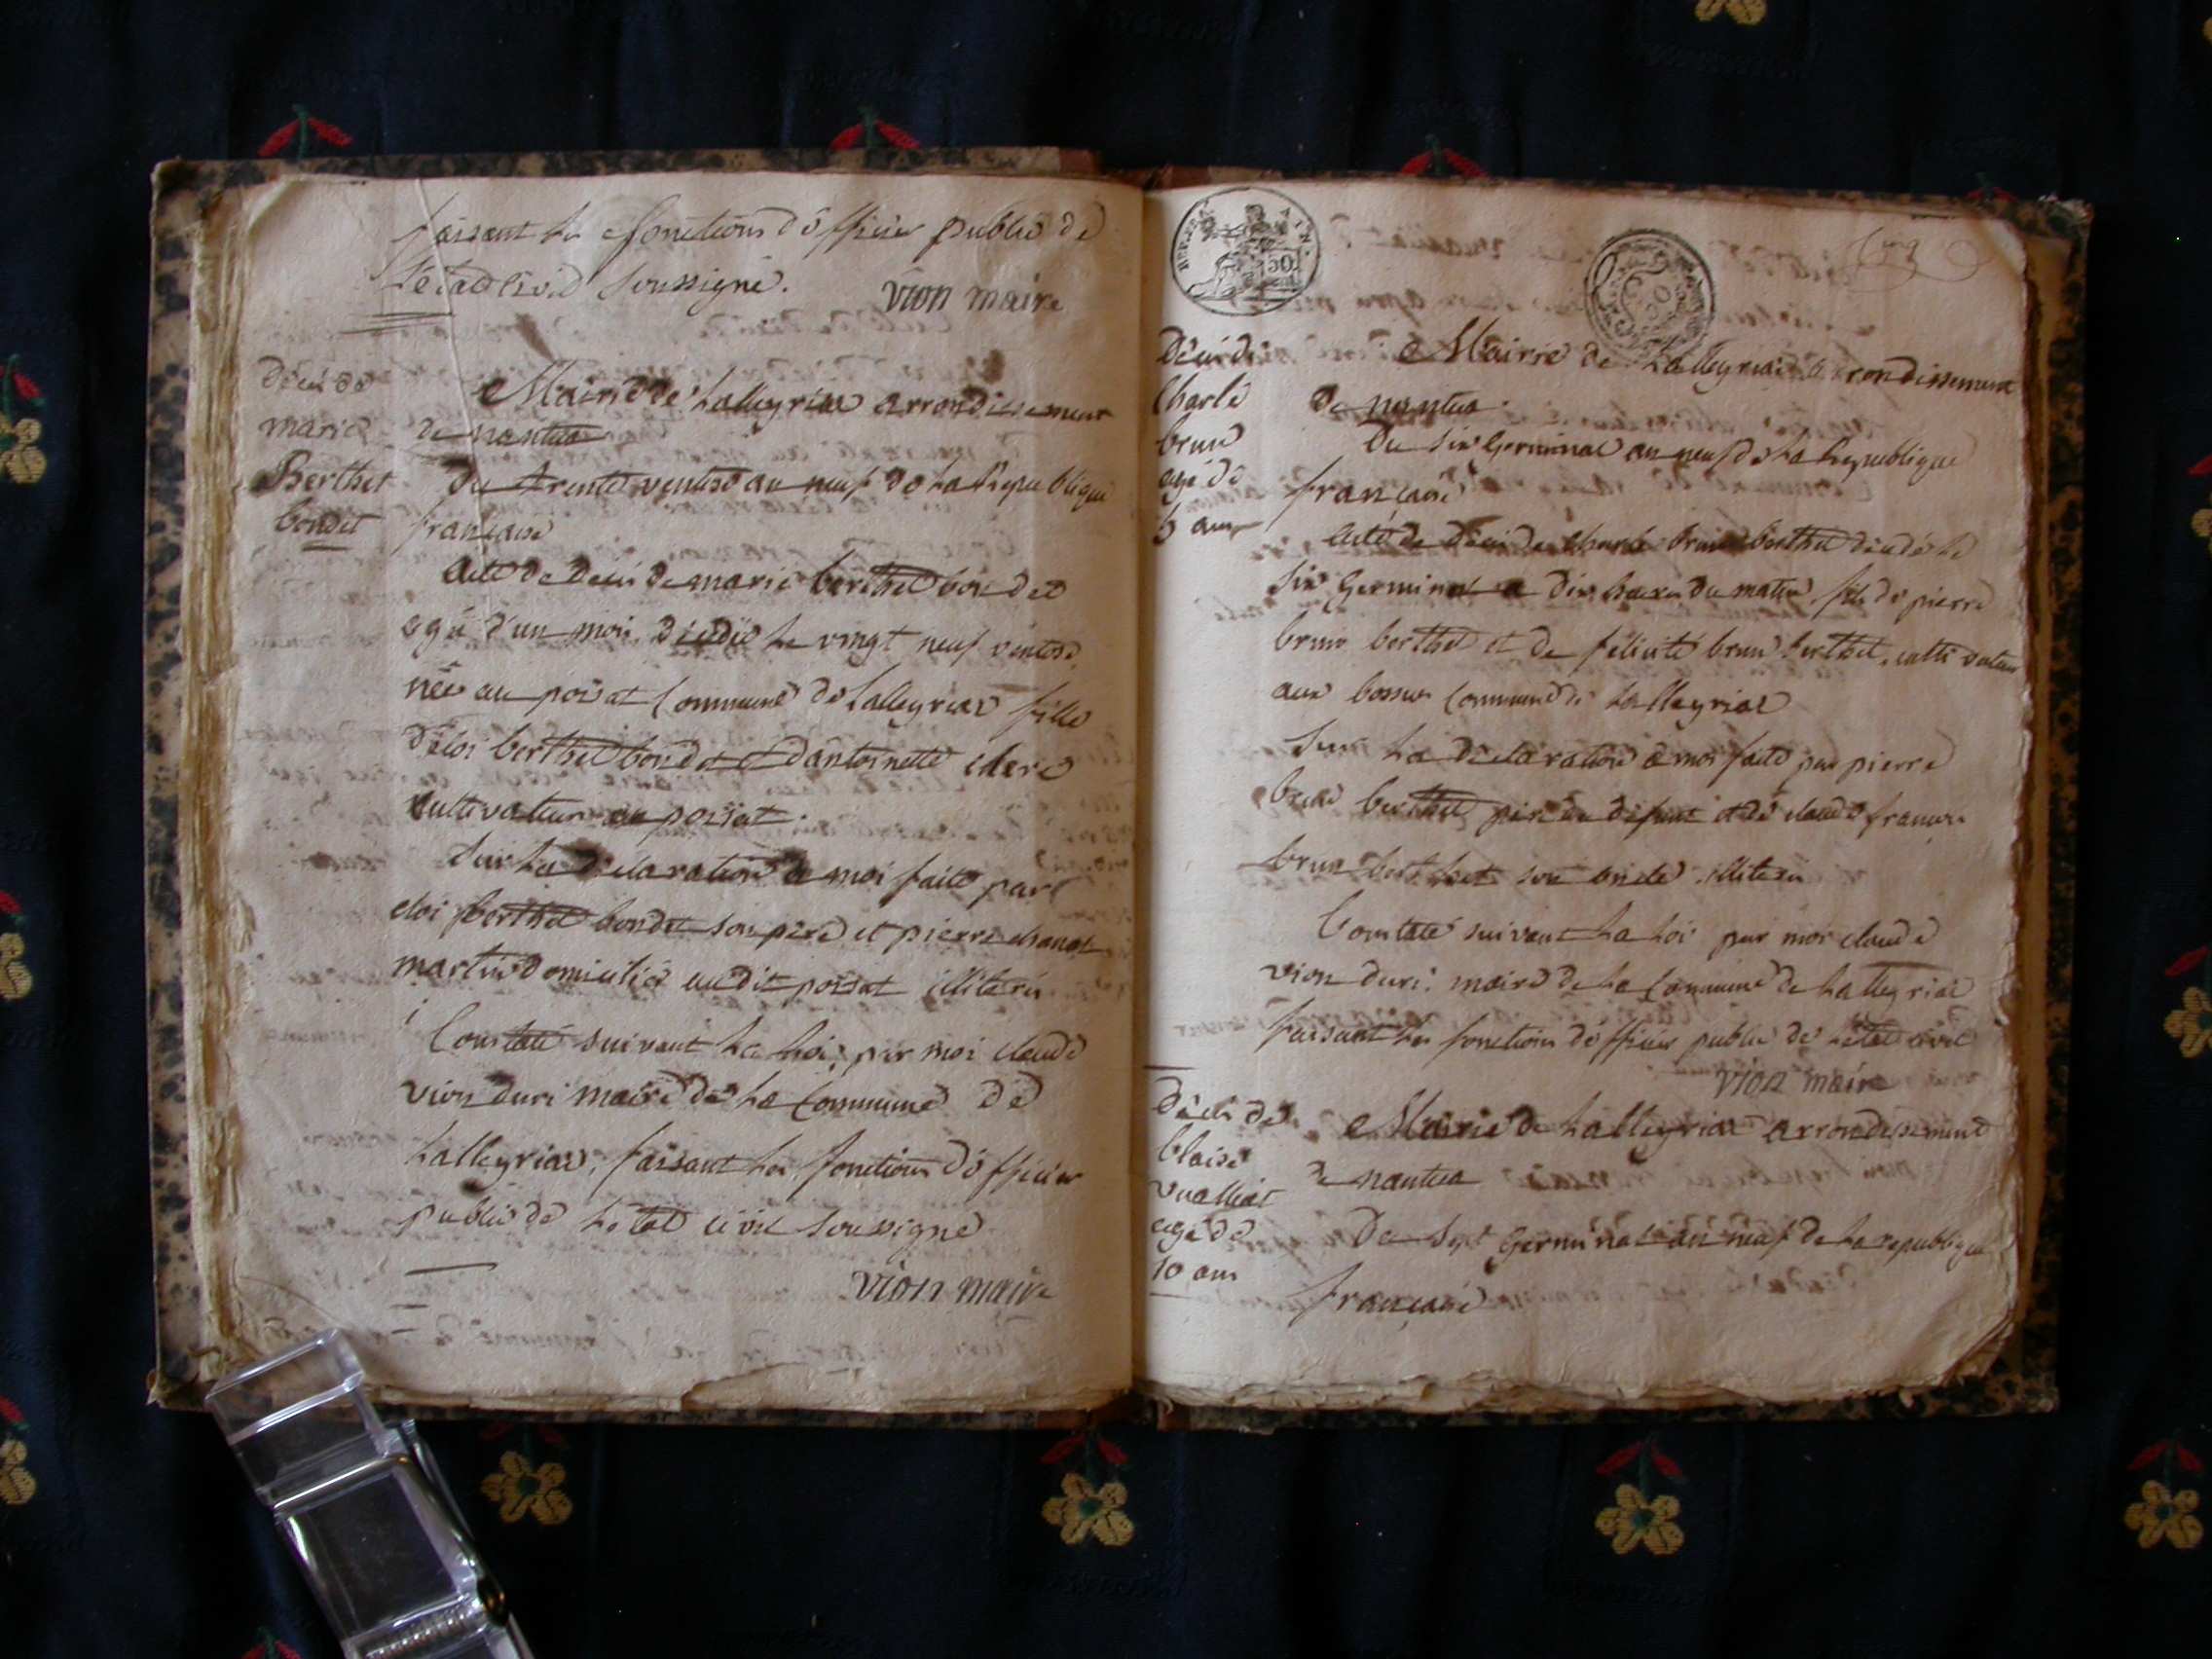 faisant les fonctions d'officier public de
l'état civil soussigné.
vion maire
Décès de
marie
Berthet
bondet
Mairie de Lalleyriat arrondissement
de nantua
Du trente ventose an neuf de La Republique
francaise
Acte de Decés de marie berthet bondet
agé d'un mois, décédé le vingt neuf ventose
née au poisat Commune de Lalleyriat fille
d'eloi berthet bondet et d'antoinette
cultivateurs au poisat.
Sur La declaration a moi faite par
eloi berthet bondet son père et pierre
martin domiciliés audit poisat illiterés
Constaté suivant La Loi, par moi claude
vion duri maire de La Commune de
Lalleyriat, faisant Les fonctions d'officier
public de L'etat civil soussigné
vion maire
50
50
Décés de
Charle
brun
agé de
ans
Mairie de Lalleyriat arrondissement
De nantua.
Du six Germinal an neuf de La Republique
francaise
Acte de Décés de Charle brun berthet décédé le
six Germinal a dix heures du matin, fils de pierre
brun berthet et de felicité brun berthet, cultivateurs
aux Commune de Lalleyriat
Sur La declaration a moi faite par pierre
brun berthet père du défunt et de claude francois
brun berthet son oncle illiterés
Constaté suivant La Loi par moi claude
vion duri: maire de La Commune de Lalleyriat
faisant Les fonctions d'officier public de L'état civil
vion maire
Décés de
blaise
vualliat
agé de
10 ans
Mairie de Lalleyriat arrondissement
de nantua
Du sept Germinal an neuf de La republique
française